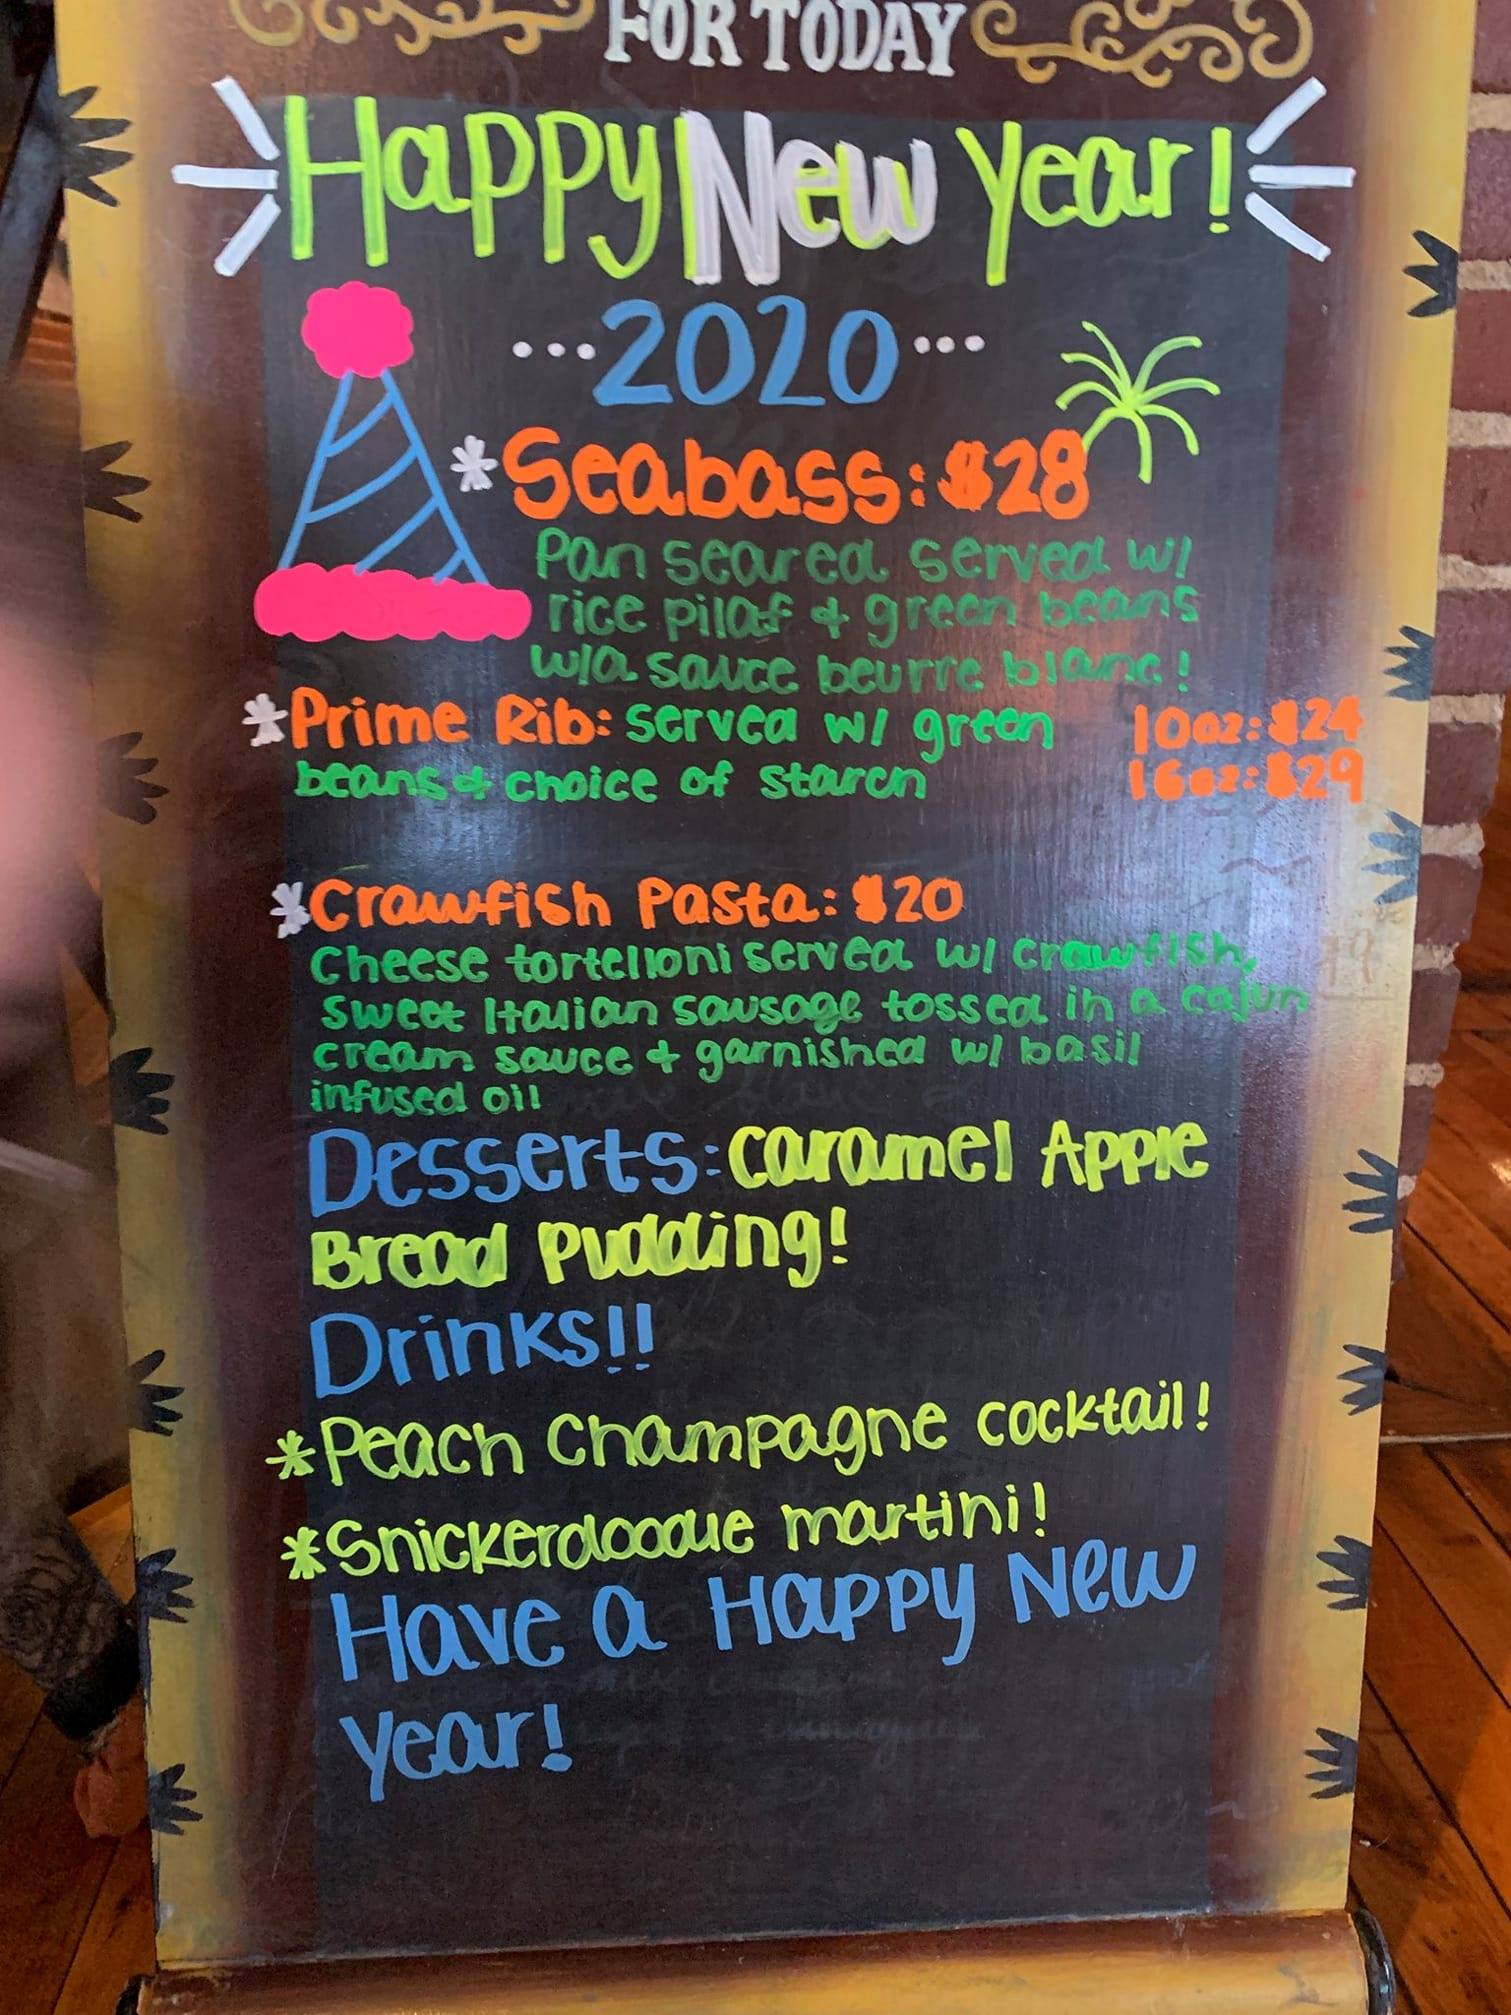 FOR TODAY
Happy New Year!
...2020...
*Seabass: $28
Pan seared served w/
rice pilaf & green beans
w/a sauce beurre blanc!
*Prime Rib: served w/ green 10oz: $24
beans & choice of starch 16oz: $29
*Crawfish Pasta: $20
Cheese tortelloni served w/ crawfish,
sweet Italian sausage tossed in a cajun
cream sauce & garnished w/ basil
infused oil
Desserts: Caramel Apple
Bread Pudding!
Drinks!!
*Peach Champagne cocktail!
*Snickerdoodle martini!
Have a Happy New
Year!